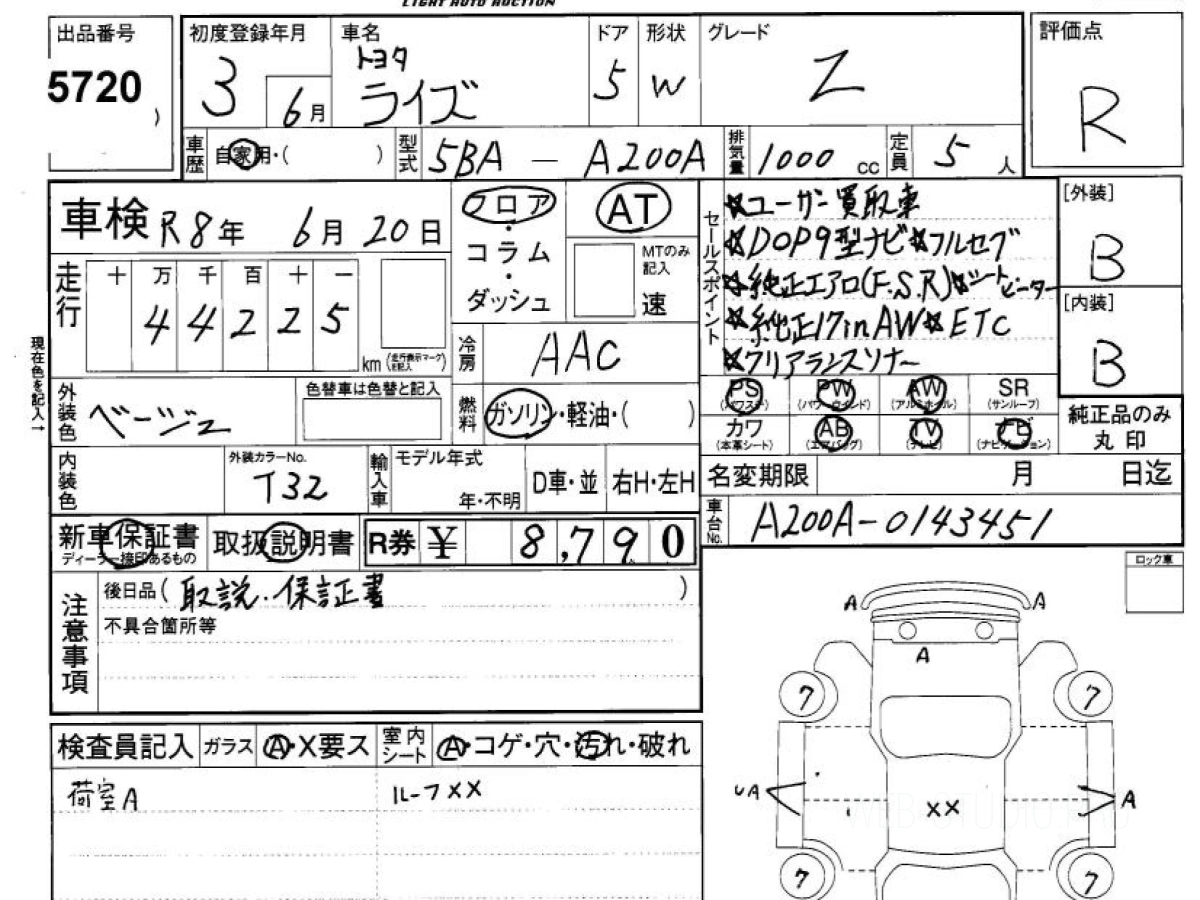 LIGHT AUTO AUCTION
出品番号 初度登録年月 車名 ドア 形状 グレード 評価点
5720 3 6月 トヨタ ライズ 5 W Z R
車歴 自家用・( ) 型式 5BA - A200A 排気量 1000 cc 定員 5 人
車検 R8年 6月 20日
フロア・コラム・ダッシュ
AT
MTのみ記入
速
セールスポイント
☆ユーザー買取車
☆DOP9型ナビ☆フルセグ
☆純正エアロ(F.S.R)☆シートヒーター
☆純正17inAW☆ETC
☆クリアランスソナー
[外装]
B
[内装]
B
走行 十 万 千 百 十 一
4 4 2 2 5
km (走行表示マークを記入)
現在色を記入→
冷房 AAC
外装色 ベージュ
色替車は色替と記入
燃料 ガソリン・軽油・( )
PS (パワステ) PW (パワーウインド) AW (アルミホイル) SR (サンルーフ)
カワ (本革シート) AB (エアバッグ) TV (テレビ) ナビ (ナビゲーション)
純正品のみ丸印
内装色
外装カラーNo.
T32
輸入車 モデル年式 年・不明 D車・並 右H・左H
名変期限 月 日迄
車台No. A200A-0143451
新車保証書 取扱説明書 R券 ¥ 8,790
ディーラー捺印あるもの
注意事項
後日品( 取説.保証書 )
不具合箇所等
ロック車
A A
A
7 7
検査員記入 ガラス A・X要ス 室内シート A・コゲ・穴・汚れ・破れ
荷室A ルーフXX
UA A
XX
7 7